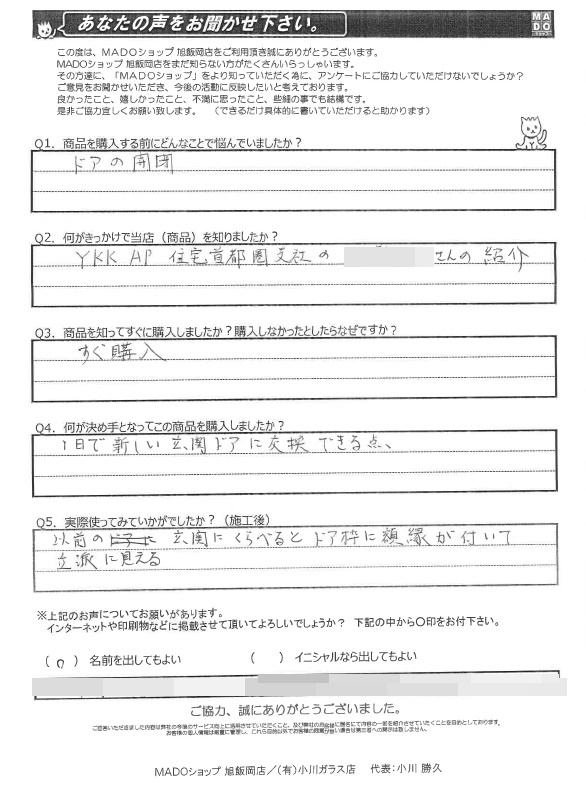 あなたの声をお聞かせ下さい。
MADO
この度は、MADOショップ 旭飯岡店をご利用頂き誠にありがとうございます。
MADOショップ 旭飯岡店をまだ知らない方がたくさんいらっしゃいます。
その方達に、「MADOショップ」をより知っていただく為に、アンケートにご協力していただけないでしょうか?
ご意見をお聞かせいただき、今後の活動に反映したいと考えております。
良かったこと、嬉しかったこと、不満に思ったこと、些細の事でも結構です。
是非ご協力宜しくお願い致します。 (できるだけ具体的に書いていただけると助かります)
Q1. 商品を購入する前にどんなことで悩んでいましたか?
ドアの開閉
Q2. 何がきっかけで当店(商品)を知りましたか?
YKK AP 住宅首都圏支社の さんの紹介
Q3. 商品を知ってすぐに購入しましたか?購入しなかったとしたらなぜですか?
すぐ購入
Q4. 何が決め手となってこの商品を購入しましたか?
1日で新しい玄関ドアに交換できる点、
Q5. 実際使ってみていかがでしたか?(施工後)
以前の 玄関にくらべるとドア枠に額縁が付いて
立派に見える
※上記のお声についてお願いがあります。
インターネットや印刷物などに掲載させて頂いてよろしいでしょうか? 下記の中から〇印をお付下さい。
( 〇 ) 名前を出してもよい ( ) イニシャルなら出してもよい
ご協力、誠にありがとうございました。
ご回答いただきました内容は弊社の今後のサービス向上に活用させていただくこと、及び弊社のお客様に匿名にて内容の一部を紹介させていくことを目的としております。
MADOショップ 旭飯岡店/(有)小川ガラス店 代表:小川 勝久